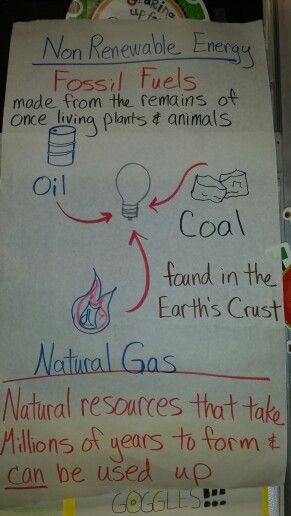 Gearing
up for
Non Renewable Energy
Fossil Fuels
made from the remains of
once living plants & animals
Oil
Coal
found in the
Earth's Crust
Natural Gas
Natural resources that take
Millions of years to form &
can be used up
GOGGLES!!!